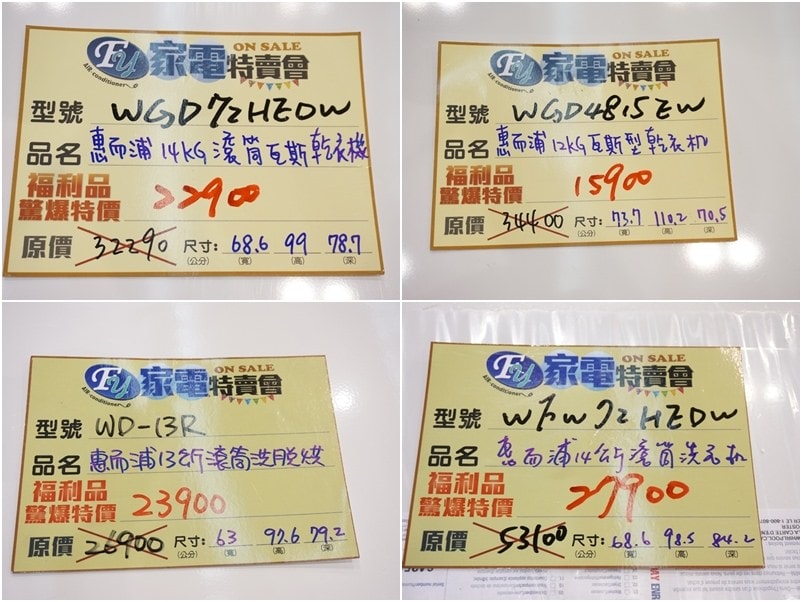 FY 家電特賣會 ON SALE
AIR conditioner
型號 WGD72HEDW
品名 惠而浦 14KG 滾筒瓦斯乾衣機
福利品
驚爆特價 22900
原價 32290 尺寸: 68.6 99 78.7
(公分) (寬) (高) (深)
FY 家電特賣會 ON SALE
AIR conditioner
型號 WGD4815EW
品名 惠而浦 12KG 瓦斯型乾衣机
福利品
驚爆特價 15900
原價 34400 尺寸: 73.7 110.2 70.5
(公分) (寬) (高) (深)
FY 家電特賣會 ON SALE
AIR conditioner
型號 WD-13R
品名 惠而浦13公斤滾筒洗脫烘
福利品
驚爆特價 23900
原價 26900 尺寸: 63 97.6 79.2
(公分) (寬) (高) (深)
FY 家電特賣會 ON SALE
AIR conditioner
型號 WFW72HEDW
品名 惠而浦14公斤滾筒洗衣机
福利品
驚爆特價 27900
原價 53100 尺寸: 68.6 98.5 84.2
(公分) (寬) (高) (深)